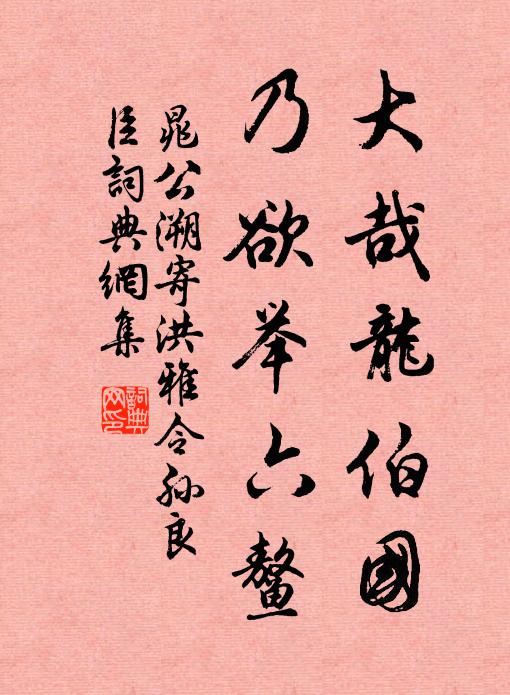 大哉龍伯國
乃欲举六鼇
晁公溯寄洪雅令孙良
臣詞典網集
詞典
网印